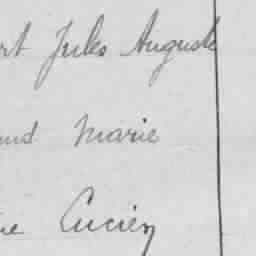 rt Jules Auguste
und Marie
ne Lucien